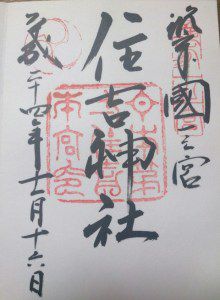 筑前國一之宮
住吉神社
平成二十四年十二月十六日